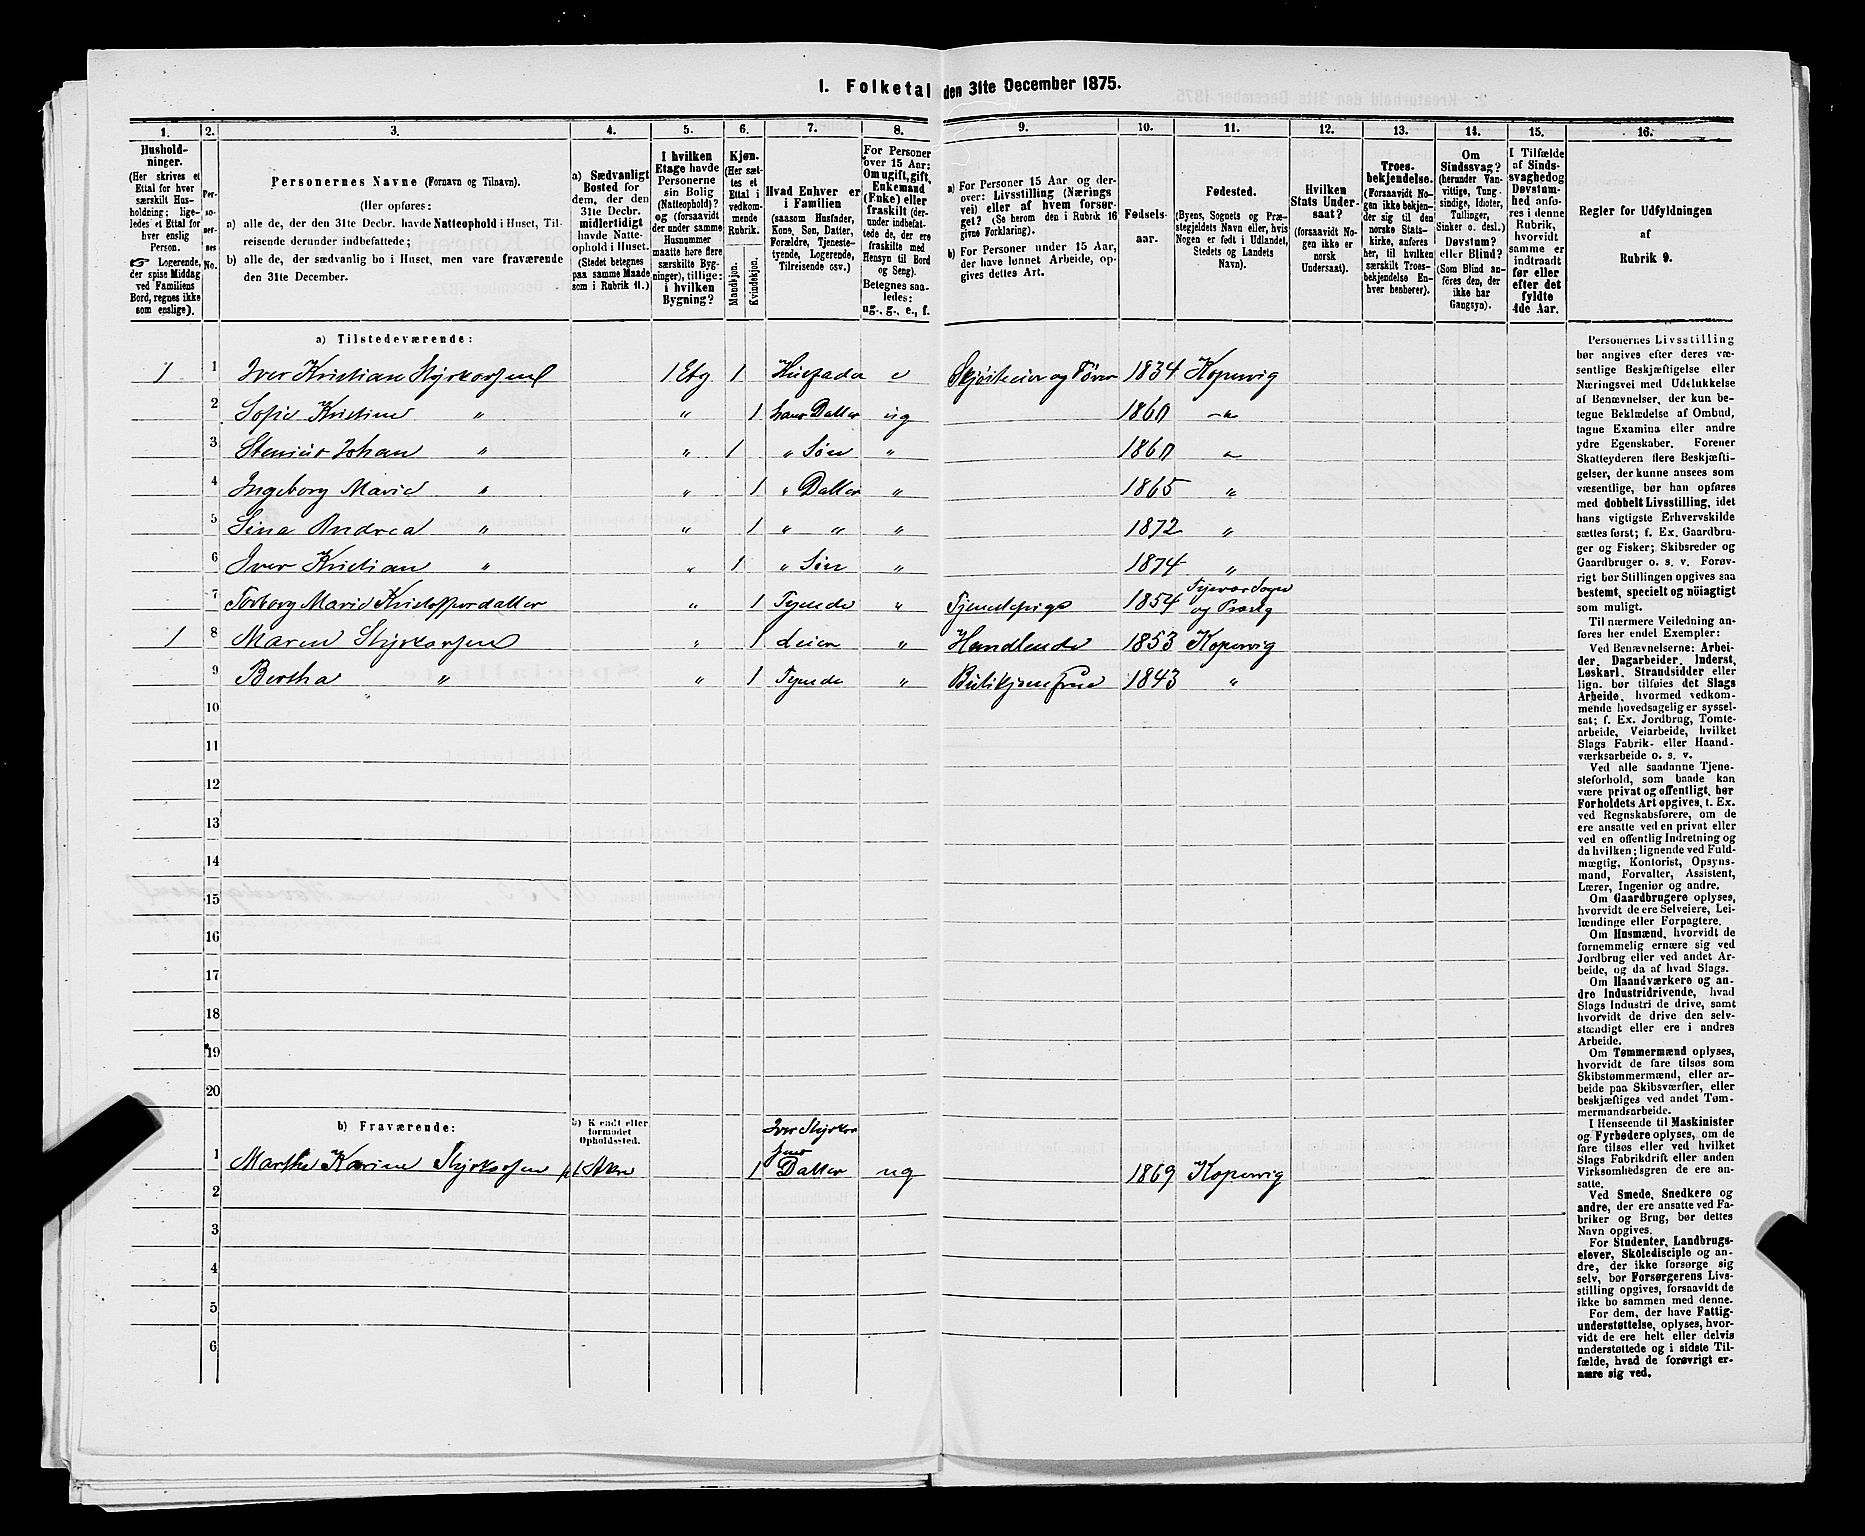 1. Folketal den 31te December 1875.
1. 2. 3. 4. 5. 6. 7. 8. 9. 10. 11. 12. 13. 14. 15. 16.
Husholdninger.
(Her skrives et
Ettal for hver
særskilt Husholdning;
ligeledes et Ettal for
hver enslig
Person.
☞ Logerende,
der spise Middag
ved Familiens
Bord, regnes ikke
som enslige).
Personernes No.
Personernes Navne (Fornavn og Tilnavn).
(Her opføres:
a) alle de, der den 31te Decbr. havde Natteophold i Huset, Tilreisende derunder indbefattede;
b) alle de, der sædvanlig bo i Huset, men vare fraværende
den 31te December.
a) Sædvanligt
Bosted for
dem, der den
31te Decbr.
midlertidigt
havde Natteophold i Huset.
(Stedet betegnes
paa samme Maade
som i Rubrik 11.)
I hvilken
Etage havde
Personerne
sin Bolig
(Natteophold)?
og (forsaavidt
der under samme
Husnummer
maatte høre flere
særskilte Bygninger), tillige:
i hvilken
Bygning?
Kjøn.
(Her sættes et
Ettal i
vedkommende
Rubrik.
Mandkjøn.
Kvindekjøn.
Hvad Enhver er
i Familien
(saasom Husfader,
Kone, Søn, Datter,
Forældre, Tjenestetyende, Logerende,
Tilreisende osv.)
For Personer
over 15 Aar:
Om ugift, gift,
Enkemand
(Enke) eller
fraskilt (derunder indbefattede de, der ere
fraskilte med
Hensyn til Bord
og Seng).
Betegnes saaledes:
ug., g., e., f.
a) For Personer 15 Aar og derover: Livsstilling (Næringsvei) eller af hvem forsørget? (Se herom den i Rubrik 16
givne Forklaring).
b) For Personer under 15 Aar,
der have lønnet Arbeide, opgives dettes Art.
Fødselsaar.
Fødested.
(Byens, Sognets og Præstegjeldets Navn eller, hvis
Nogen er født i Udlandet,
Stedets og Landets
Navn).
Hvilken
Stats Undersaat?
(forsaavidt Nogen ikke er
norsk
Undersaat).
Troesbekjendelse.
(Forsaavidt Nogen ikke bekjender sig til den
norske Statskirke, anføres
her, til hvilket
særskilt Troesbekjendelse Enhver henhører).
Om
Sindssvag?
(herunder Vanvittige, Tungsindige, Idioter,
Tullinger,
Sinker o. desl.)
Døvstum?
eller Blind?
(Som Blind anføres den, der
ikke har
Gangsyn).
I Tilfælde
af Sindssvaghed og
Døvstumhed anføres i denne
Rubrik,
hvorvidt
samme er
indtraadt
før eller
efter det
fyldte
4de Aar.
Regler for Udfyldningen
af
Rubrik 9.
a) Tilstedeværende:
1 1 Iver Kristian Styrkorsen 1 Etg 1 Husfader e Skjøitseier og Fører 1834 Kopervig
2 Sofie Kristine " " 1 hans Datter ug 1860 "
3 Stenius Johan " " 1 " Søn 1860 "
4 Ingeborg Marie " " 1 " Datter " 1865 "
5 Sina Andrea " " 1 " " " 1872 "
6 Iver Kristian " " 1 " Søn " 1874 "
7 Torborg Marie Kristoffersdatter " 1 Tyende " Tjenestepige 1854 og Præstg
1 8 Maren Styrkorsen " 1 Leier " Handlende 1853 Kopervig
9 Bertha " " 1 Tyende " 1843 "
10
11
12
13
14
15
16
17
18
19
20
b) Fraværende:
b) Kjendt eller
formodet
Opholdssted.
Iver Styrkorsens
1 Marthe Karine Styrkorsen 1 Datter ug 1869 Kopervig
2
3
4
5
6
Personernes Livsstilling
bør angives efter deres væsentlige Beskjæftigelse eller
Næringsvei med Udelukkelse
af Benævnelser, der kun betegne Beklædelse af Ombud,
tagne Examina eller andre
ydre Egenskaber. Forener
Skatteyderen flere Beskjæftigelser, der kunne ansees som
væsentlige, bør han opføres
med dobbelt Livsstilling, idet
hans vigtigste Erhvervskilde
sættes først; f. Ex. Gaardbruger og Fisker; Skibsreder og
Gaardbruger o. s. v. Forøvrigt bør Stillingen opgives saa
bestemt, specielt og nöiagtigt
som muligt.
Til nærmere Veiledning anføres her endel Exempler:
Ved Benævnelserne: Arbeider, Dagarbeider, Inderst,
Løskarl, Strandsidder eller
lign. bør tilføies det Slags
Arbeide, hvormed vedkommende hovedsagelig er sysselsat; f. Ex. Jordbrug, Tomtearbeide, Veiarbeide, hvilket
Slags Fabrik- eller Haandværksarbeide o. s. v.
Ved alle saadanne Tjenesteforhold, som baade kan
være privat og offentligt, bør
Forholdets Art opgives, t. Ex.
ved Regnskabsførere, om de
ere ansatte ved en privat eller
ved en offentlig Indretning og
da hvilken; lignende ved Fuldmægtig, Kontorist, Opsynsmand, Forvalter, Assistent,
Lærer, Ingeniør og andre.
Om Gaardbrugere oplyses,
hvorvidt de ere Selveiere, Leilændinge eller Forpagtere.
Om Husmænd, hvorvidt de
fornemmelig ernære sig ved
Jordbrug eller ved andet Arbeide, og da af hvad Slags.
Om Haandværkere og andre Industridrivende, hvad
Slags Industri de drive, samt
hvorvidt de drive den selvstændigt eller ere i andres
Arbeide.
Om Tømmermænd oplyses,
hvorvidt de fare tilsøs som
Skibstømmermænd, eller arbeide paa Skibsværfter, eller
beskjæftiges ved andet Tømmermandsarbeide.
I Henseende til Maskinister
og Fyrbødere oplyses, om de
fare tilsøs eller ved hvilket
Slags Fabrikdrift eller anden
Virksomhedsgren de ere ansatte.
Ved Smede, Snedkere og
andre, der ere ansatte ved Fabriker og Brug, bør dettes
Navn opgives.
For Studenter, Landbrugselever, Skoledisciple og andre, der ikke forsørge sig
selv, bør Forsørgerens Livsstilling opgives, forsaavidt de
ikke bo sammen med denne.
For dem, der have Fattigunderstøttelse, oplyses, hvorvidt de ere helt eller delvis
understøttede og i sidste Tilfælde, hvad de forøvrigt ernære sig ved.